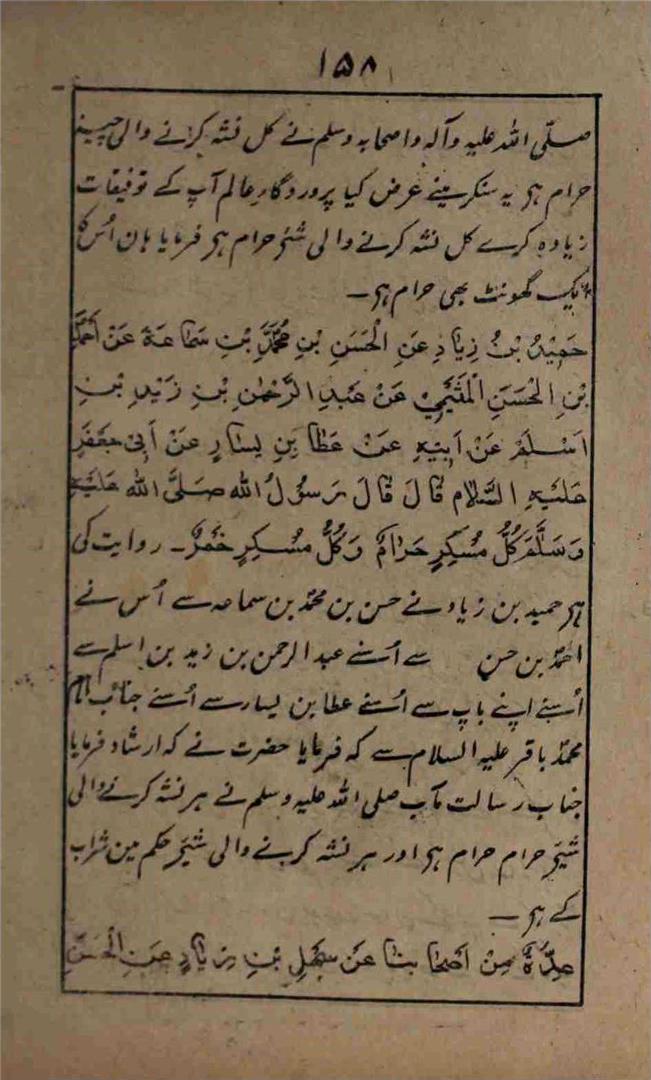 ۱۵۸
صلّی اللہ علیہ وآلہ واصحابہ وسلم نے کل نشہ کرنے والی چیز
حرام ہی یہ سنکر مینے عرض کیا پروردگار عالم آپ کے توفیقات
زیادہ کرے کل نشہ کرنے والی شئی حرام ہی فرمایا ہان اُس کا
ایک گھونٹ بھی حرام ہی ۔
حَمِیْدُ بْنُ زِیَادٍ عَنِ الْحَسَنِ بْنِ مُحَمَّدِ بْنِ سَمَاعَةَ عَنْ اَحْمَدَ
بْنِ الْحَسَنِ الْمَثِیْمِیِّ عَنْ عَبْدِ الرَّحْمٰنِ بْنِ زَیْدِ بْنِ
اَسْلَمَ عَنْ اَبِیْهِ عَنْ عَطَا بِنِ یَسَارٍ عَنْ اَبِیْ جَعْفَرٍ
عَلَیْهِ السَّلَام قَالَ قَالَ رَسُوْلُ الله صَلَّی الله عَلَیْهِ
وَسَلَّمَ کُلُّ مُسْکِرٍ حَرَامٌ وَکُلُّ مُسْکِرٍ خَمْرٌ ۔ روایت کی
ہی حمید بن زیاد نے حسن بن محمد بن سماعہ سے اُس نے
احمد بن حسن سے اُسنے عبد الرحمن بن زید بن اسلم سے
اُسنے اپنے باپ سے اُسنے عطا بن یسار سے اُسنے جناب امام
محمد باقر علیہ السلام سے کہ فرمایا حضرت نے کہ ارشاد فرمایا
جناب رسالت مآب صلی اللہ علیہ وسلم نے ہر نشہ کرنے والی
شئی حرام حرام ہی اور ہر نشہ کرنے والی شئی حکم مین شراب
کے ہی ۔
عِدَّةٌ مِنْ اَصْحَابِنَا عَنْ سَهْلِ بْنِ زِیَادٍ عَنِ الْحَسَنِ